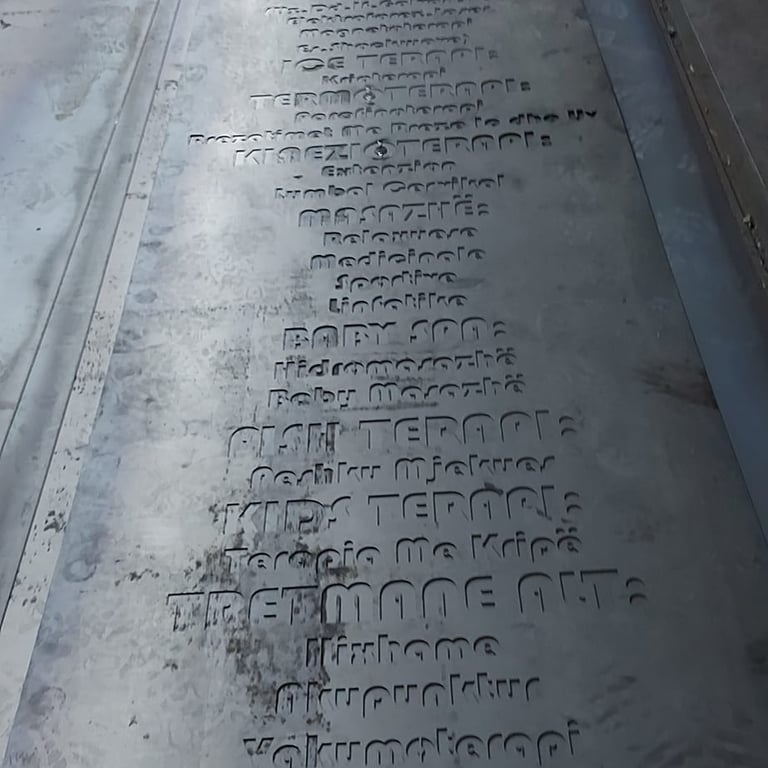 Magnetoterapi
ICE TERAPI:
Krioterapi
TERMOTERAPI:
Parafinterapi
KINEZIOTERAPI:
Extenzion
Lumbal Cervikal
MASAZHË:
Relaxuese
Medicinale
Sportive
Limfatike
BABY SPA:
Hidromasazhë
Baby Masazhë
FISH TERAPI:
Peshku Mjekues
KIDS TERAPI:
Terapia Me Kripë
TRETMANE ALT:
Hixhame
Akupunktur
Vakumoterapi